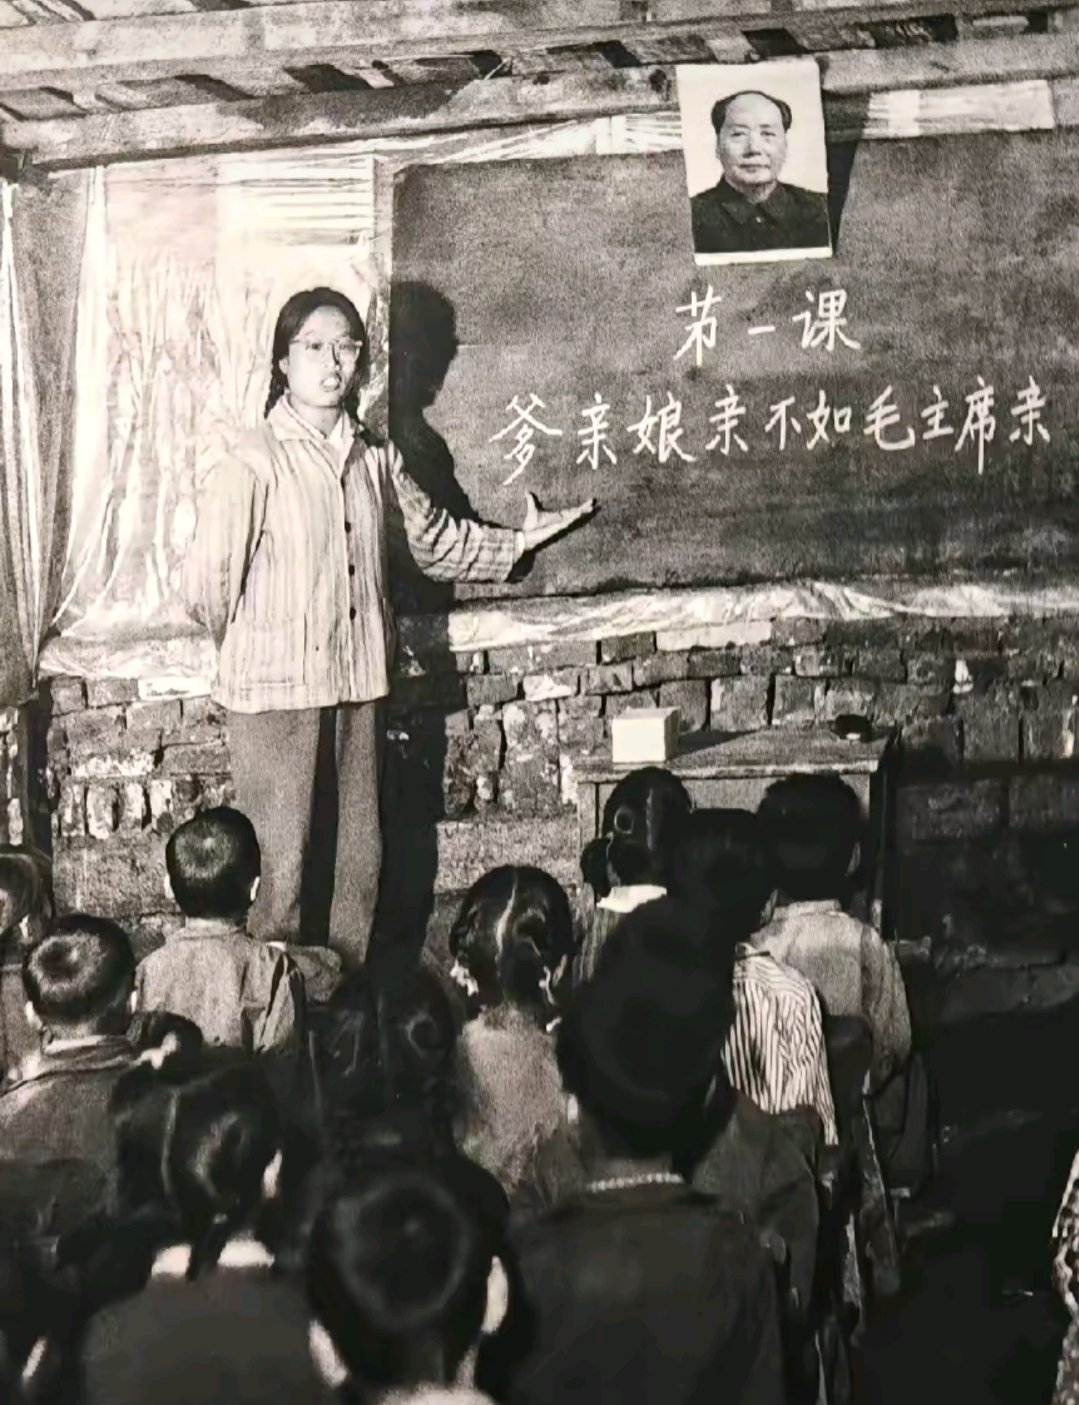 苐一课
爹亲娘亲不如毛主席亲